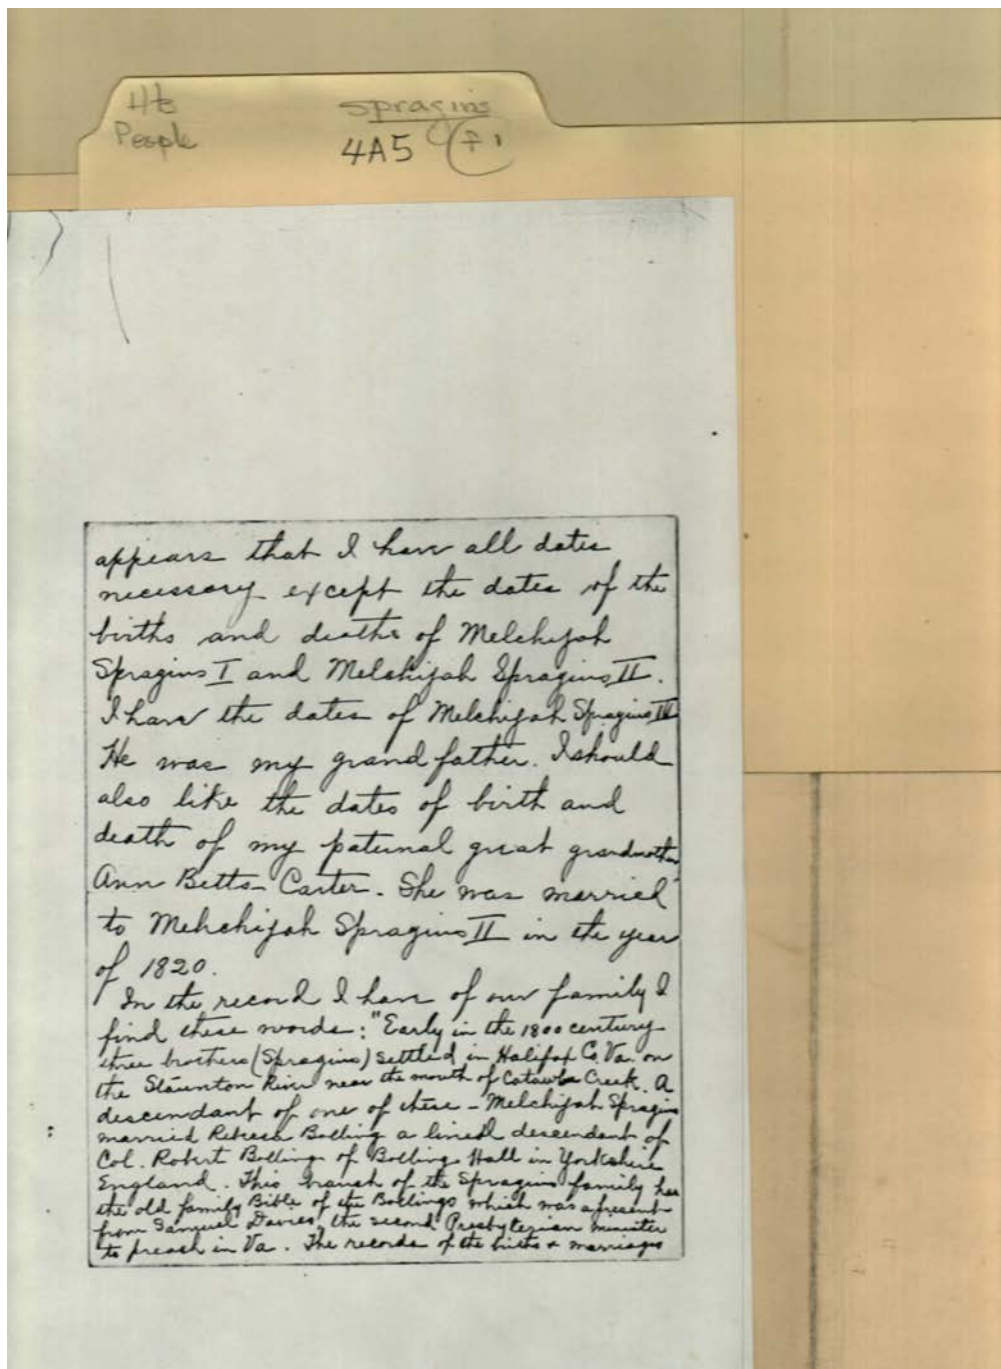 Hx
People
Spragins
4A5 f1
appears that I have all dates
necessary except the dates of the
births and deaths of Melchijah
Spragins I and Melchijah Spragins II.
I have the dates of Melchijah Spragins III
He was my grand father. I should
also like the dates of birth and
death of my paternal great grandmother
Ann Betts Carter. She was married
to Mehchijah Spragins II in the year
of 1820.
In the record I have of our family I
find these words: "Early in the 1800 century
three brothers (Spragins) settled in Halifax Co. Va. on
the Staunton River near the mouth of Catawba Creek. A
descendant of one of these - Melchijah Spragins
married Rebecca Bolling a lineal descendant of
Col. Robert Bolling of Bolling Hall in Yorkshire
England. This branch of the Spragins family has
the old family Bible of the Bollings which was a present
from Samuel Davies, the second Presbyterian minister
to preach in Va. The records of the births & marriages